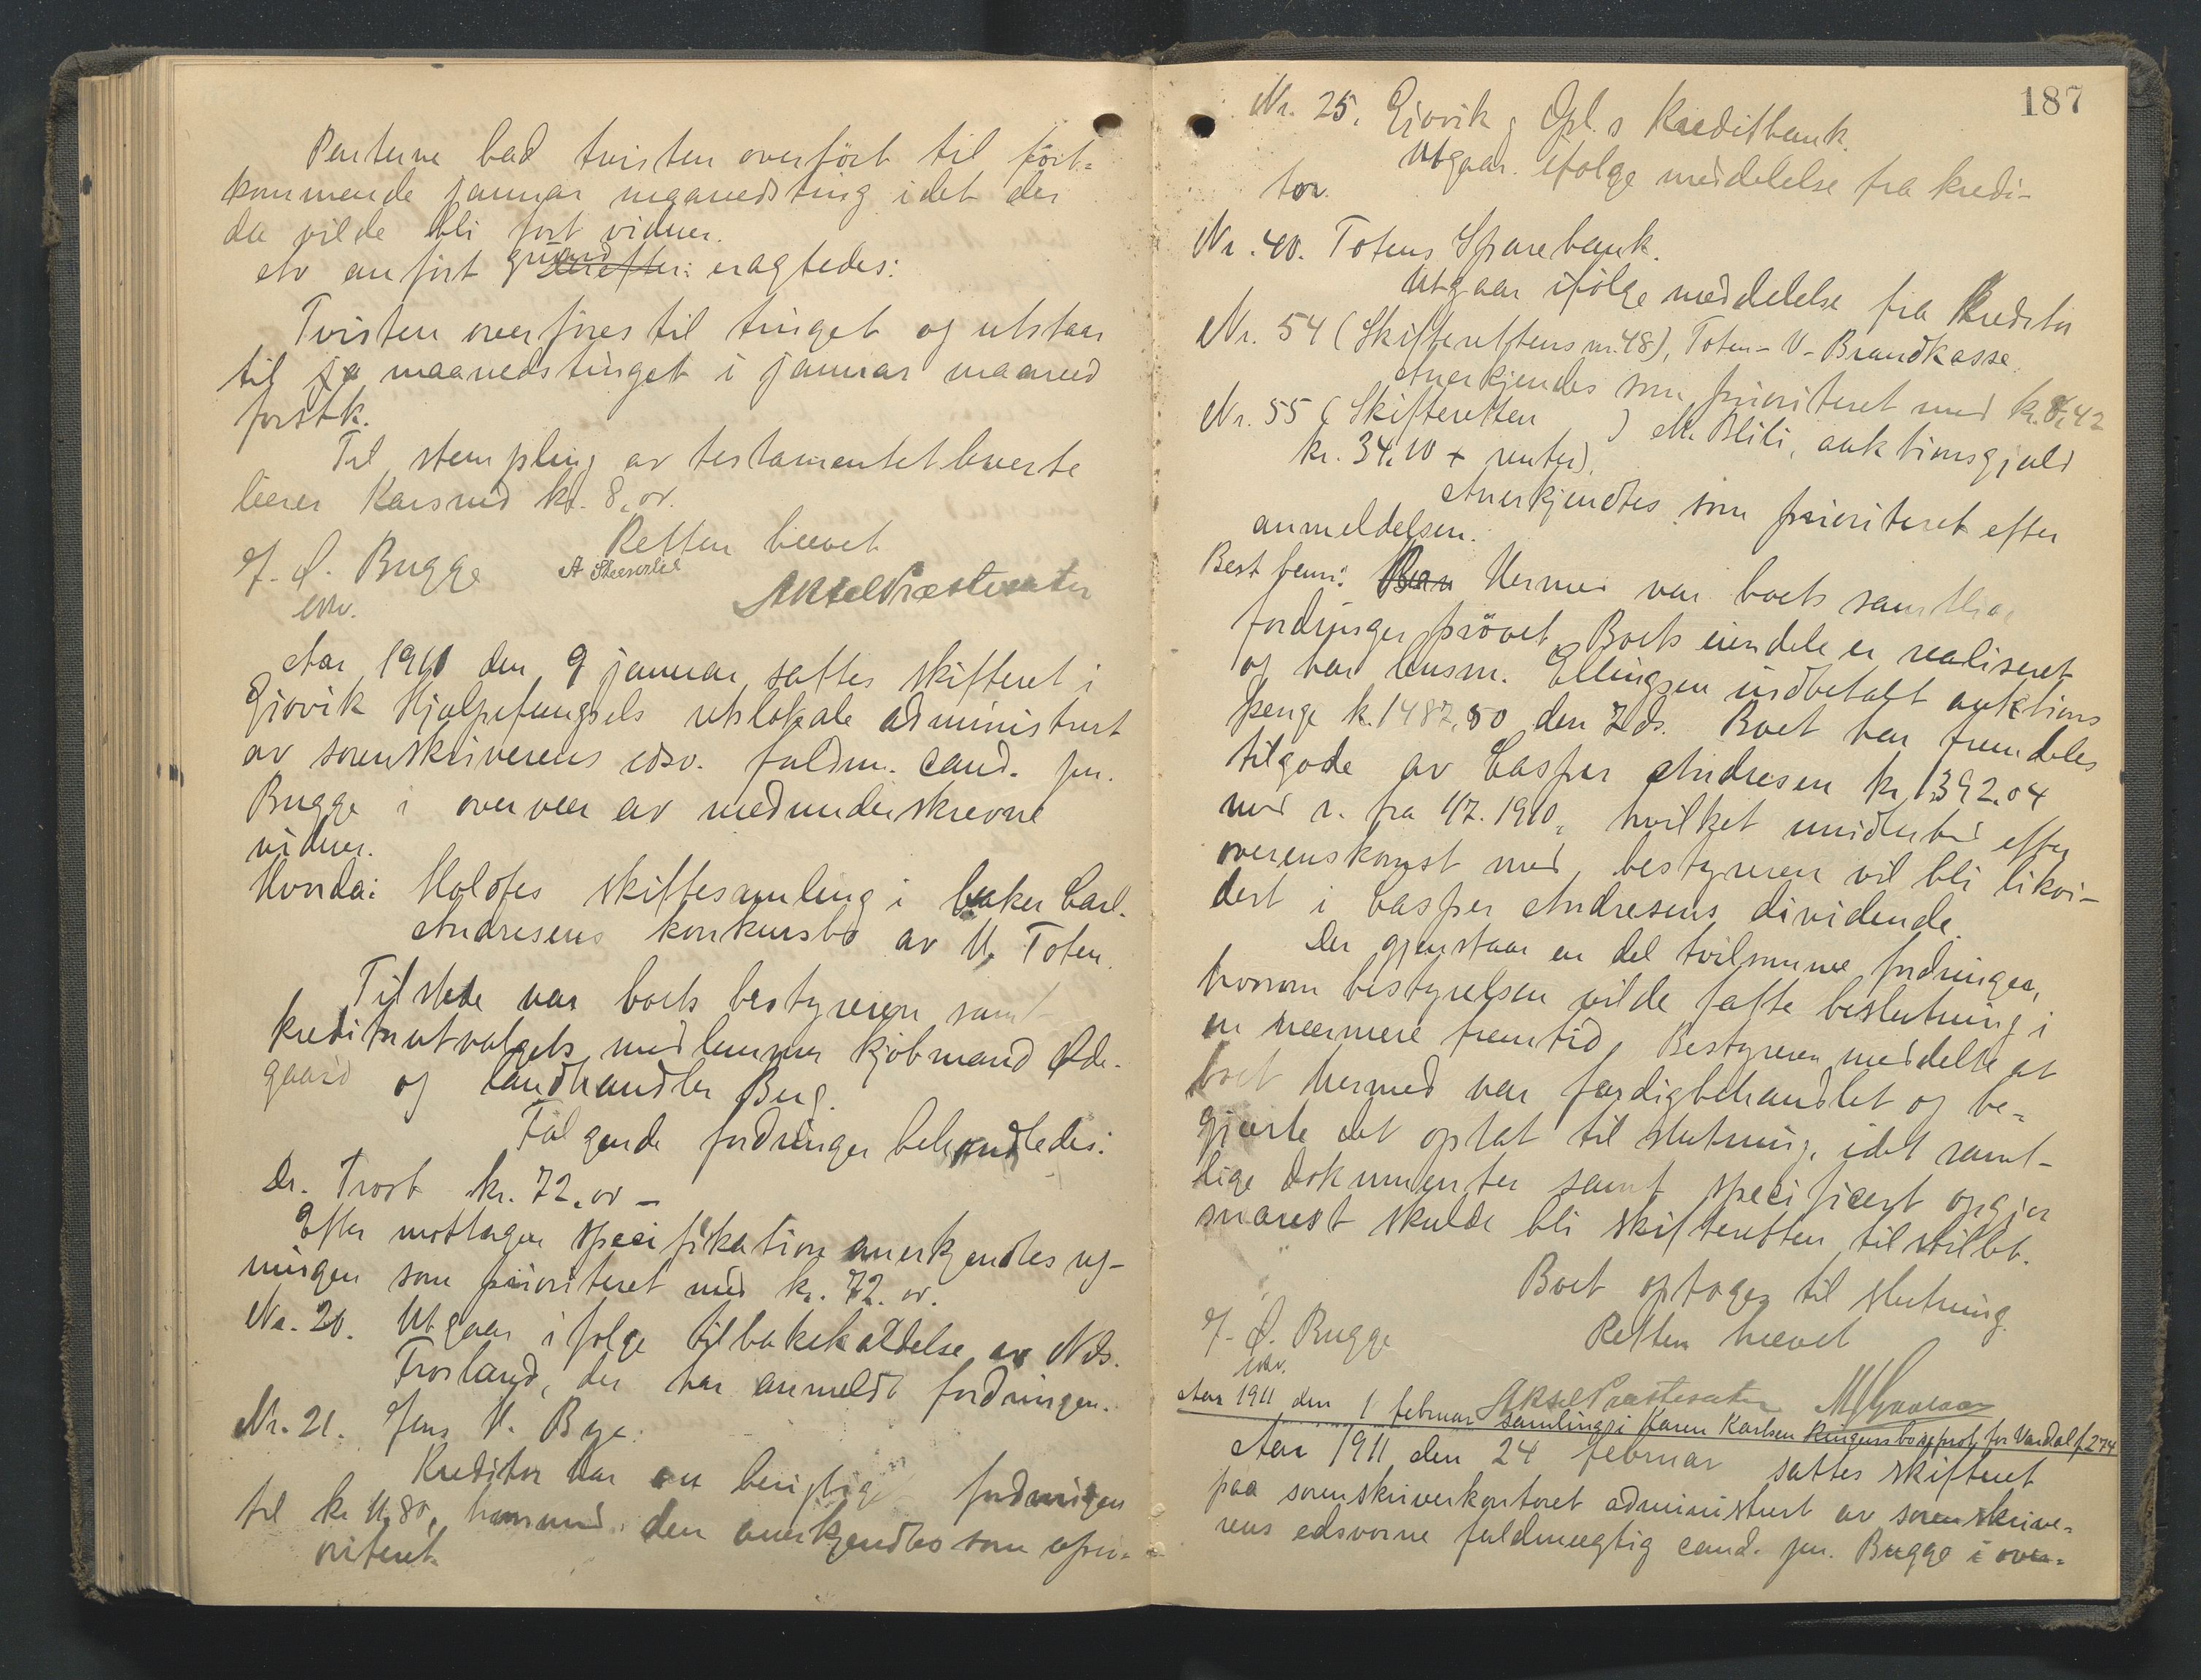 Parterne bad tvisten overført til først-
kommende januar maanedsting idet der
da vilde bli ført vidner.
Av anført grund eragtedes:
Tvisten overføres til tinget og utstaar
til ja maanedstinget i januar maaned
førstk.
Til stempling av testamentet leverte
Karsrud kr. 8,00.
Retten hævet
J. L. Bugge
edsv.
Aksel Præstesæter
Aar 1911 den 9 januar sattes skifteret i
Gjøvik Hjælpefængsels retslokale administrert
av sorenskriverens edsv. fuldm. cand. jur.
Bugge i overvær av medunderskrevne
vidner.
Hvorda: Holdtes skiftesamling i baker Carl
Andresens konkursbo av V. Toten.
Tilstede var boets bestyreren samt
kreditorutvalgets medlemmer kjøbmand Øde-
gaard og landhandler Berg.
Følgende fordringer behandledes:
Dr. Trost kr. 72,00 -
Efter mottagen specifikation anerkjendtes reg-
ningen som prioriteret med kr. 72.00.
Nr. 20. Utgaar ifølge tilbakekaldelse av Nils
Frosland, der har anmeldt fordringen.
Nr. 21. Jens V. Bye.
Kreditor har berigtiget fordringen
til kr 11,80, hvormed den anerkjendtes som upri-
oriteret.
187
Nr. 25. Gjøvik og Opl.s Kreditbank.
Utgaar ifølge meddelelse fra kredi-
tor.
Nr. 40. Totens Sparebank.
Utgaar ifølge meddelelse fra Kreditor
Nr. 54 (Skifterettens nr. 48), Toten-V-Brandkasse
Anerkjendes som prioriteret med kr. 8,42
Nr. 55 (Skifteretten ) M. Blili, auktionsgjæld
kr. 34,10 + renter).
Anerkjendtes som prioriteret efter
anmeldelsen.
Best. bem: Hermed var boets samtlige
fordringer prøvet. Boets eiendele er realiseret
og har lensm. Ellingsen indbetalt auktions
penge kr. 1487,80 den 7 ds. Boet har fremdeles
tilgode av Casper Andresen kr 1392.04
med r. fra 1/7. 1910, hvilket imidlertid efter
overenskomst med bestyreren vil bli likvi-
dert i Casper Andresens dividende.
Der gjenstaar en del tvilsomme fordringer,
hvorom bestyrelsen vilde fatte beslutning i
en nærmere fremtid. Bestyreren meddelte at
boet hermed var færdigbehandlet og be-
gjærte det optat til slutning, idet samt-
lige dokumenter samt specificert opgjør
snarest skulde bli skifteretten tilstillet.
Boet optages til slutning.
Retten hævet
J. L. Bugge
edsv.
Aksel Præstesæter
Aar 1911 den 1 februar samling i Karen Karlsen Ringens bo se prot. for Vardal f 274
Aar 1911 den 24 februar sattes skifteret
paa sorenskriverkontoret administrert av sorenskrive-
rens edsvorne fuldmægtig cand. jur. Bugge i over-